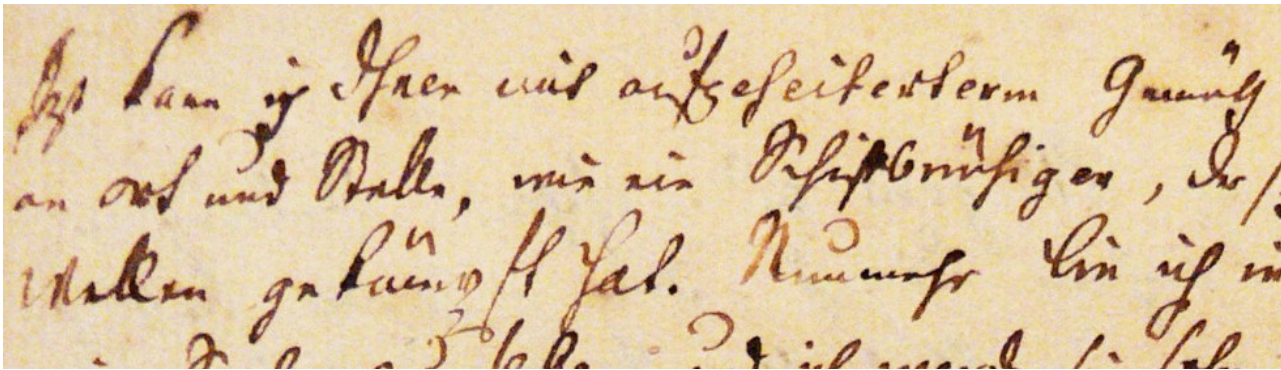 Jtzt kann ich Ihnen mit aufgeheitertem Gemüth
an ort und Stelle, wie ein Schiffbrüchiger, der
Wellen gekämpft hat. Nunmehr bin ich
und ich